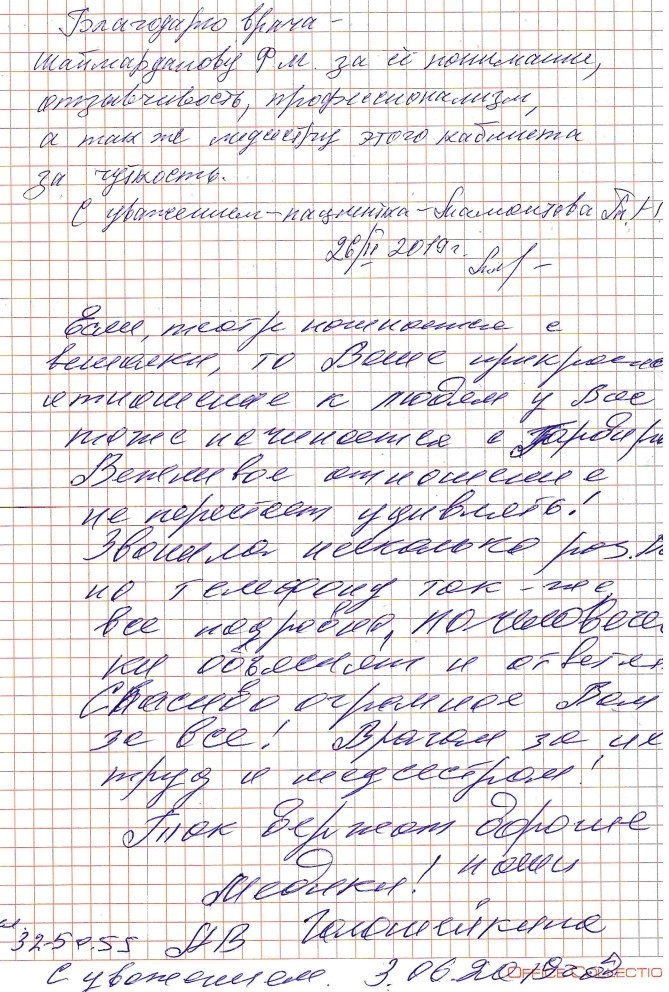 Благодарю врача -
Шаймарданову Ф.М. за её понимание,
отзывчивость, профессионализм,
а так же медсестру этого кабинета
за чуткость.
С уважением - пациентка - Мамонтова
26/II 2019 г.
Если, театр начинается с
вешалки, то Ваше прикрасное
отношение к людям у Вас
тоже начинается с Гардероб
Вежливое отношение
не перестает удивлять!
Звонила несколько раз.
по телефону так-же,
все подробно, по человечес
ки объяснят и ответят
Спасибо огромное Вам
за все! Врачам за их
труд и медсестрам!
Так держат дорогие
наши
Медики!
32-50-55 АВ Голошейкина
С уважением. 3.06.2019
OFFICE COLLECTIO